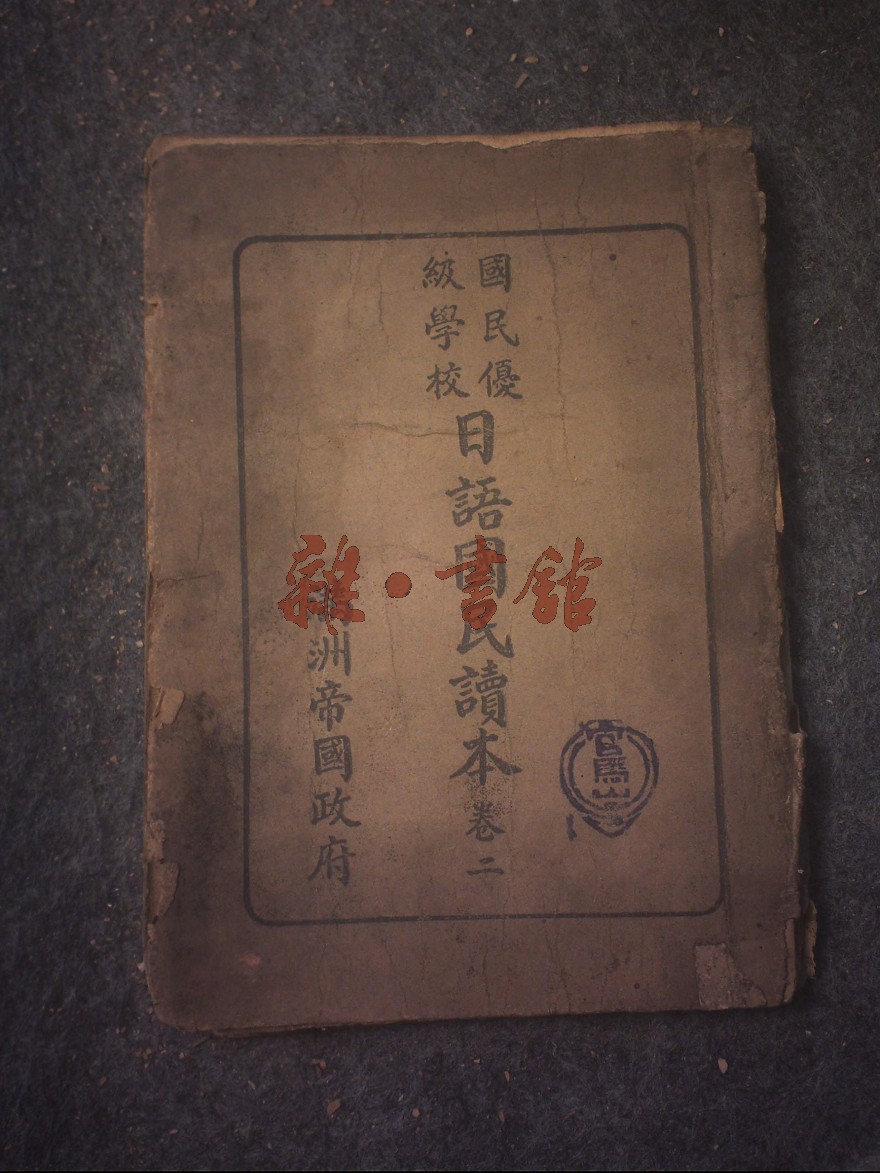 國民優
級學校
日語國民讀本 卷二
洲帝國政府
雜·書館